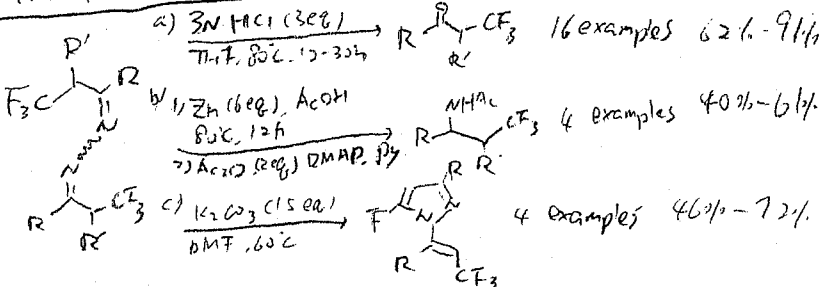 a) 3N HCl (3eq)
THF, 80℃, 12-30h
R O CF3 R'
16 examples 62%-91%
R' F3C R N
b) 1) Zn (6eq), AcOH
80℃, 12h
2) Ac2O (2eq) DMAP, Py
NHAc R CF3 R
4 examples 40%-61%
N R CF3 R'
c) K2CO3 (1.5 eq)
DMF, 60℃
R F N N R CF3
4 examples 46%-72%